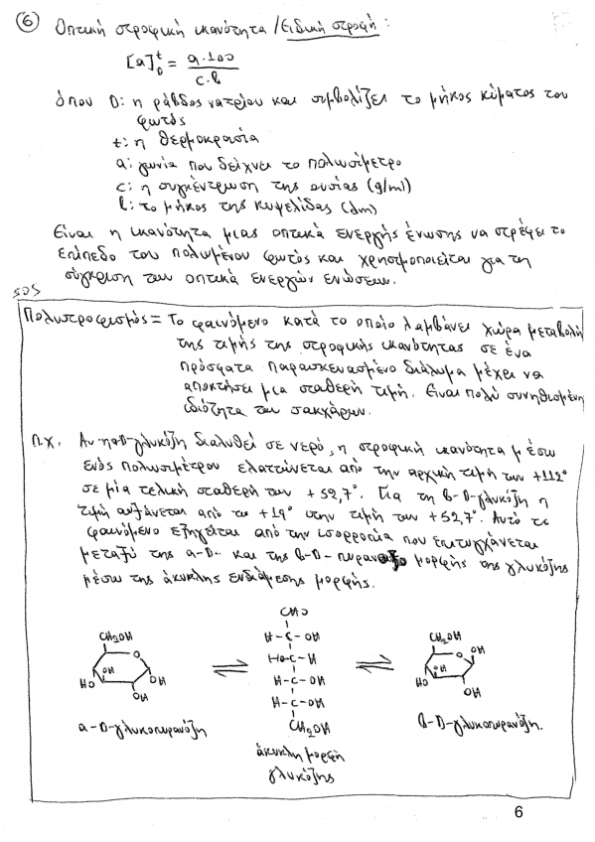 ⑥ Οπτική στροφική ικανότητα / Ειδική στροφή :
[a]ᵗ_D = a.100 / c.l
όπου D: η ράβδος νατρίου και συμβολίζει το μήκος κύματος του
φωτός
t: η θερμοκρασία
a: γωνία που δείχνει το πολωσίμετρο
c: η συγκέντρωση της ουσίας (g/ml)
l: το μήκος της κυψελίδας (dm)
Είναι η ικανότητα μιας οπτικά ενεργής ένωσης να στρέφει το
επίπεδο του πολωμένου φωτός και χρησιμοποιείται για τη
σύγκριση των οπτικά ενεργών ενώσεων.
SOS
Πολυστροφισμός = Το φαινόμενο κατά το οποίο λαμβάνει χώρα μεταβολή
της τιμής της στροφικής ικανότητας σε ένα
πρόσφατα παρασκευασμένο διάλυμα μέχρι να
αποκτήσει μια σταθερή τιμή. Είναι πολύ συνηθισμένη
ιδιότητα των σακχάρων.
Π.χ. Αν η α-D-γλυκόζη διαλυθεί σε νερό, η στροφική ικανότητα μέσω
ενός πολωσιμέτρου ελαττώνεται από την αρχική τιμή των +112°
σε μία τελική σταθερή των +52,7°. Για τη β-D-γλυκόζη η
τιμή αυξάνεται από το +19° στην τιμή των +52,7°. Αυτό το
φαινόμενο εξηγείται από την ισορροπία που επιτυγχάνεται
μεταξύ της α-D- και της β-D- μορφής της γλυκόζης
μέσω της άκυκλης ενδιάμεσης μορφής.
CHO
CH₂OH H-C-OH CH₂OH
O HO-C-H O
OH ⇌ H-C-OH ⇌ OH OH
HO OH H-C-OH HO
OH CH₂OH OH
α-D-γλυκοπυρανόζη β-D-γλυκοπυρανόζη.
άκυκλη μορφή
γλυκόζης
6